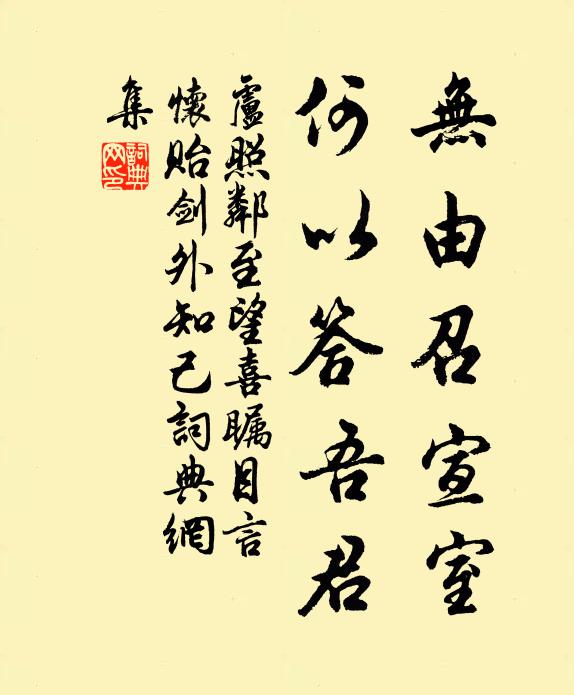 無由召宣室
何以答吾君
盧照鄰至望喜矚目言
懷貽剑外知己詞典網
集
詞典
网印